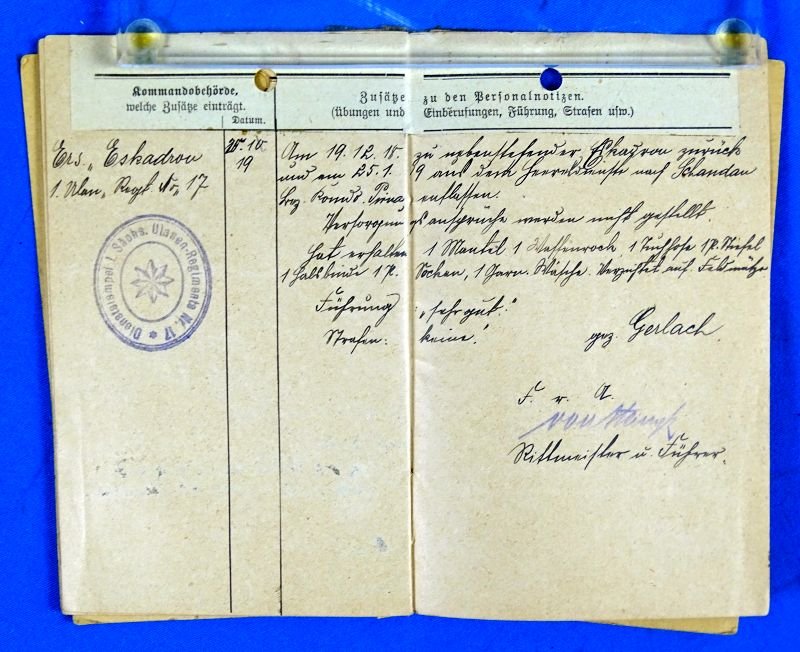 Kommandobehörde,
welche Zusätze einträgt.
Datum.
Zusätze zu den Personalnotizen.
(übungen und Einberufungen, Führung, Strafen usw.)
Ers. Eskadron
1. Ulan. Regt. No. 17
25. 10.
19
Am 19. 12. 18. zu nebenstehender Eskadron zurück
und am 25. 1. 19 aus dem Heeresdienste nach Schandau
Bez. Komdo. Pirna entlassen.
Versorgungsansprüche werden nicht gestellt.
Hat erhalten 1 Mantel 1 Waffenrock, 1 Tuchhose 1 P. Stiefel
1 Halsbinde 1 P. Socken, 1 Garn. Wäsche. Verzichtet auf Feldmütze
Führung „sehr gut."
Strafen: keine.
gez. Gerlach.
F. d. R.
Rittmeister u. Führer.
Dienststempel 1. Sächs. Ulanen-Regiments Nr. 17